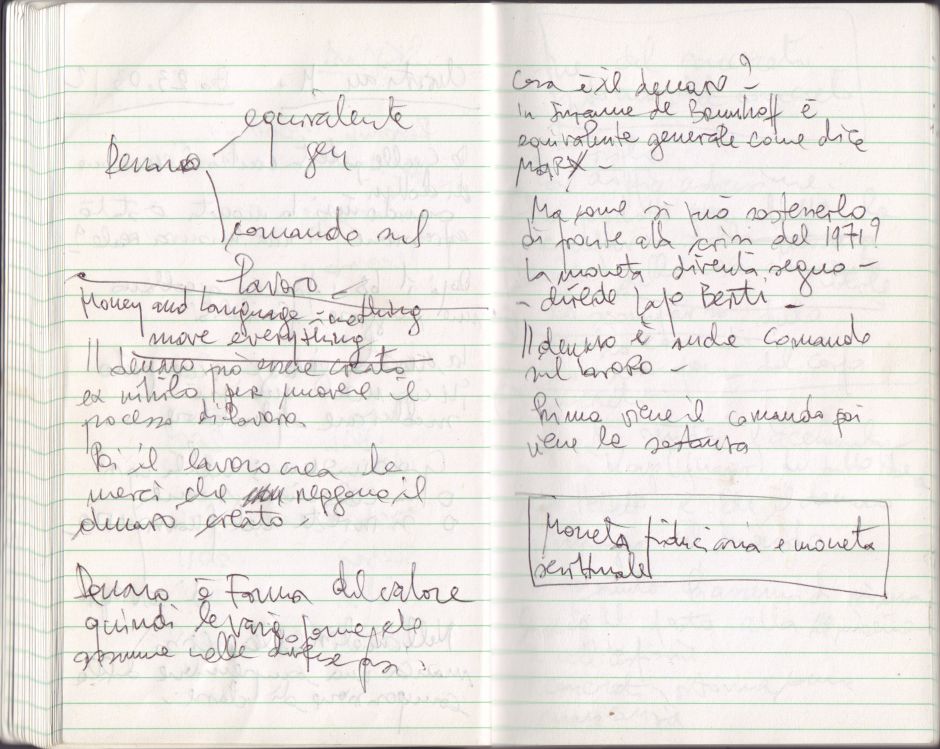 equivalente
Denaro
gen
comando sul
lavoro -
Money and Language - nothing
move everything
Il denaro può essere creato
ex nihilo, per muovere il
processo di lavoro.
Poi il lavoro crea le
merci che reggono il
denaro creato.
Denaro è Forma del valore
quindi le varie forme che
assume nelle diverse fasi.
Cosa è il denaro? -
in Suzanne de Brunhoff è
equivalente generale come dice
MARX -
Ma come si può sostenerlo
di fronte alla crisi del 1971?
La moneta diventa segno -
- direbbe Lapo Berti -
Il denaro è anche comando
sul lavoro -
Prima viene il comando poi
viene la
Moneta fiduciaria e moneta
scritturale